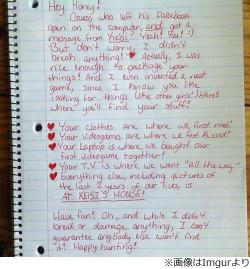 Hey Honey!
Guess who left his Facebook
open on the computer, and got a
message from KEISI? Yeah! You! :)
But don't worry, I didn't
break anything! ♥ Actually, I was
nice enough to package your
things! And I even invented a neat
game, since I know you like
looking for things like other girls! Here's
where you'll find your stuff!
♥ Your clothes are where we first met!
♥ Your videogames are where we first kissed!
♥ Your Laptop is where we bought our
first videogame together!
♥ Your T.V is where we went "all the way"
♥ Everything else, including pictures of
the last 2 years of our lives, is
AT KEISI'S HOUSE!
Have fun! Oh, and while I didn't
break or damage anything, I can't
guarantee anybody else won't find
it! Happy hunting!
※画像はImgurより